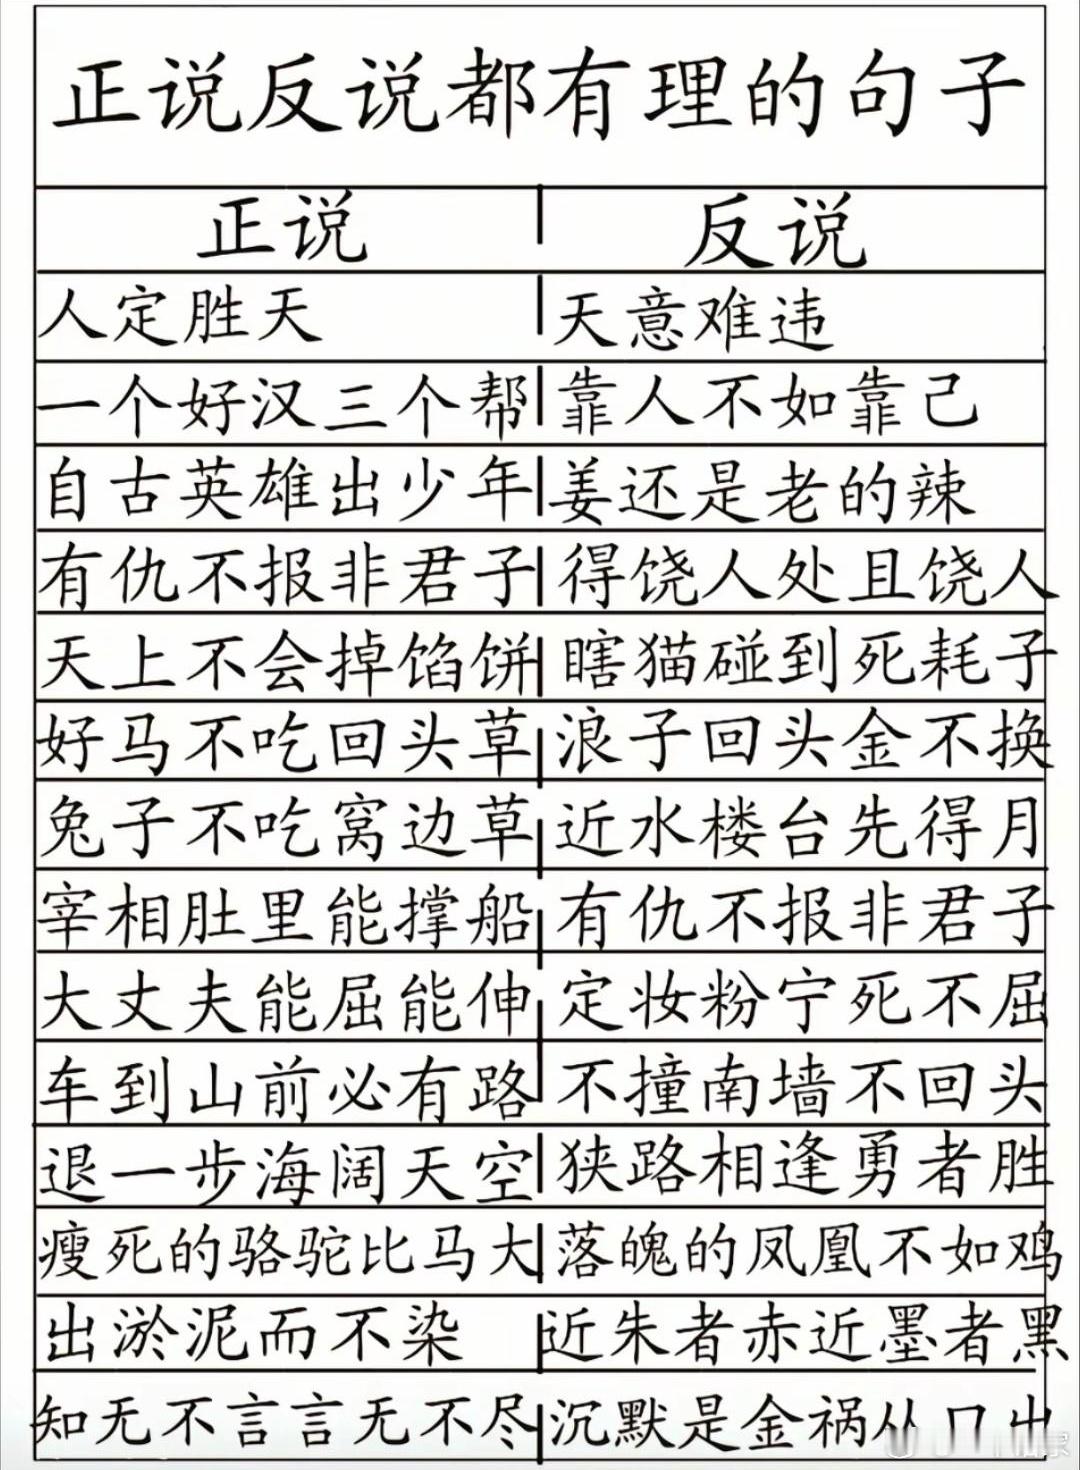 正说反说都有理的句子
正说 反说
人定胜天 天意难违
一个好汉三个帮 靠人不如靠己
自古英雄出少年 姜还是老的辣
有仇不报非君子 得饶人处且饶人
天上不会掉馅饼 瞎猫碰到死耗子
好马不吃回头草 浪子回头金不换
兔子不吃窝边草 近水楼台先得月
宰相肚里能撑船 有仇不报非君子
大丈夫能屈能伸 定妆粉宁死不屈
车到山前必有路 不撞南墙不回头
退一步海阔天空 狭路相逢勇者胜
瘦死的骆驼比马大 落魄的凤凰不如鸡
出淤泥而不染 近朱者赤近墨者黑
知无不言言无不尽 沉默是金祸从口出